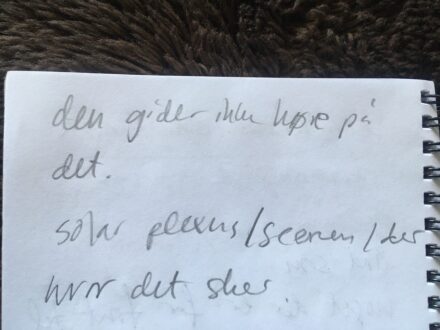 den gider ikke høre på
det.
solar plexus/scenen/der
hvor det sker